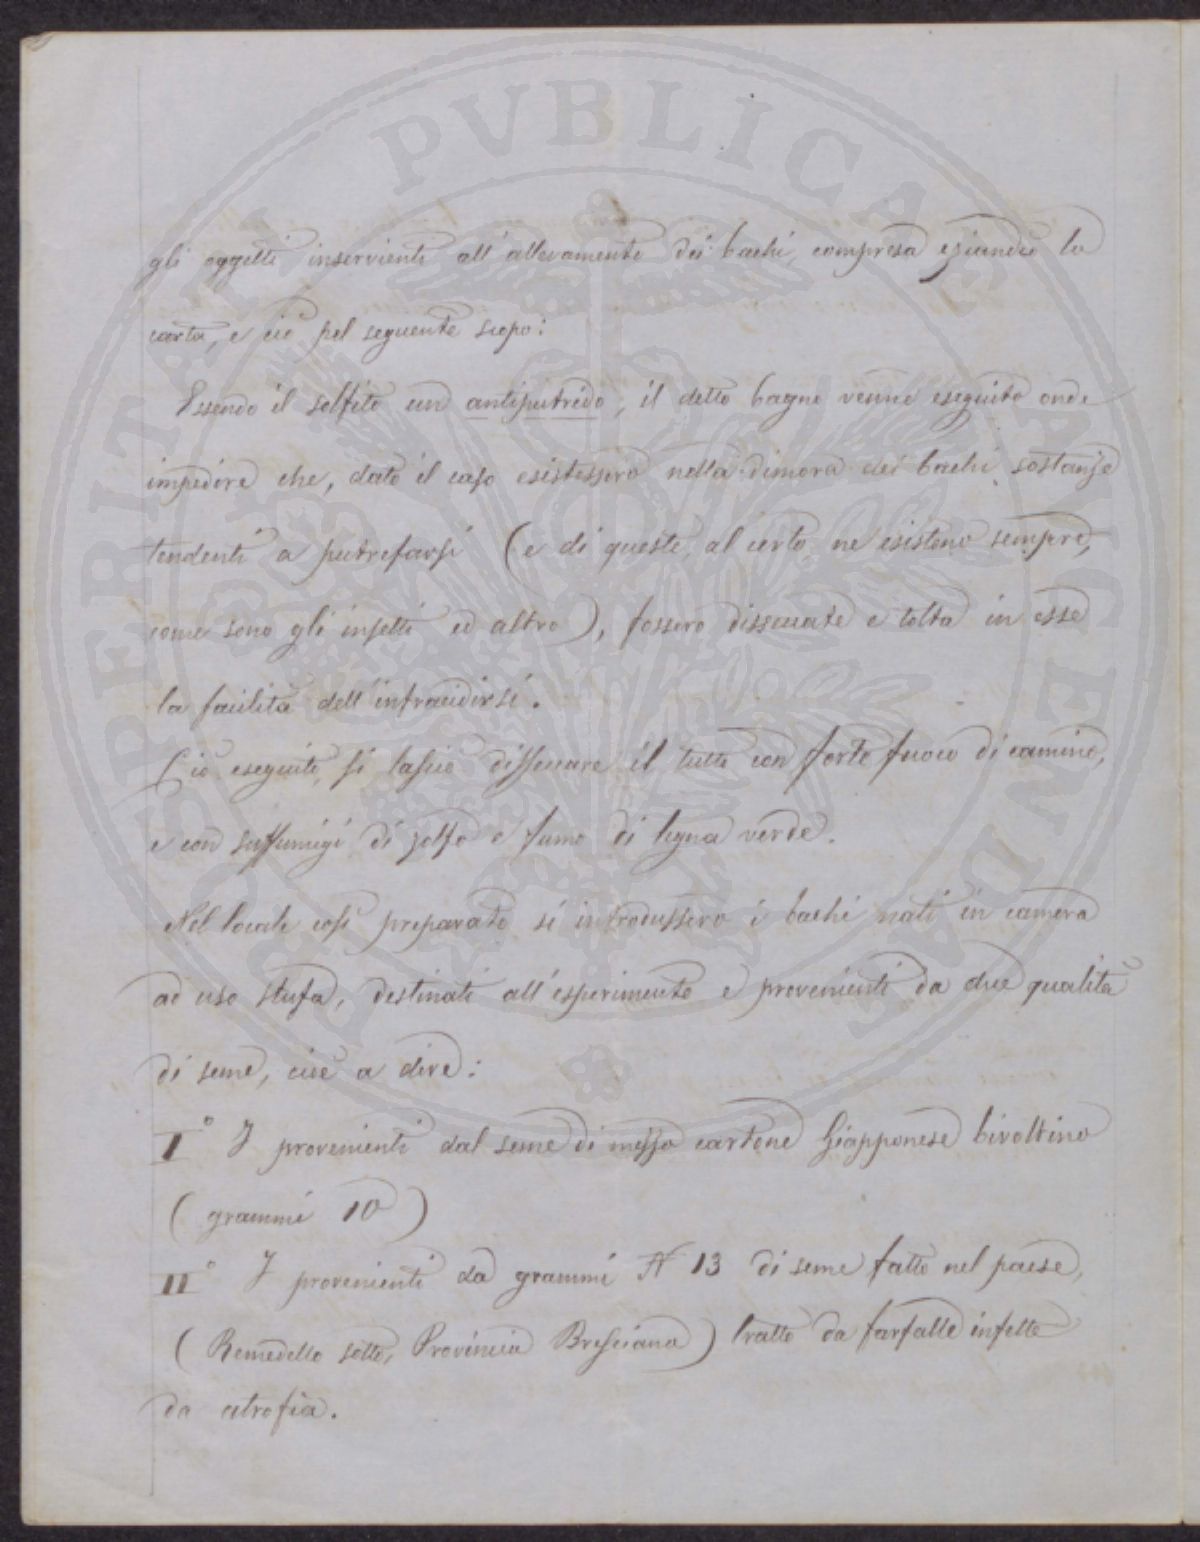 PROSPERITATI PVBLICAE AVGENDAE
gli oggetti inservienti all'allevamento dei bachi, compresa eziandio la
carta, e ciò pel seguente scopo:
Essendo il solfito un antiputrido, il detto bagno venne eseguito onde
impedire che, dato il caso esistessero nella dimora dei bachi, sostanze
tendenti a putrefarsi (e di queste, al certo, ne esistono sempre,
come sono gli insetti ed altro), fossero dissecate e tolta in esse
la facilità dell'infracidirsi.
Ciò eseguito, si lasciò dissecare il tutto con forte fuoco di camino,
e con suffumigi di zolfo e fumo di legna verde.
Nel locale così preparato si introdussero i bachi nati in camera
ad uso stufa, destinati all'esperimento e provenienti da due qualità
di seme, cioè a dire:
I° I provenienti dal seme di mezzo cartone Giapponese bivoltino
(grammi 10)
II° I provenienti da grammi N 13 di seme fatto nel paese,
(Remedello sotto, Provincia Bresciana) tratto da farfalle infette
da atrofia.